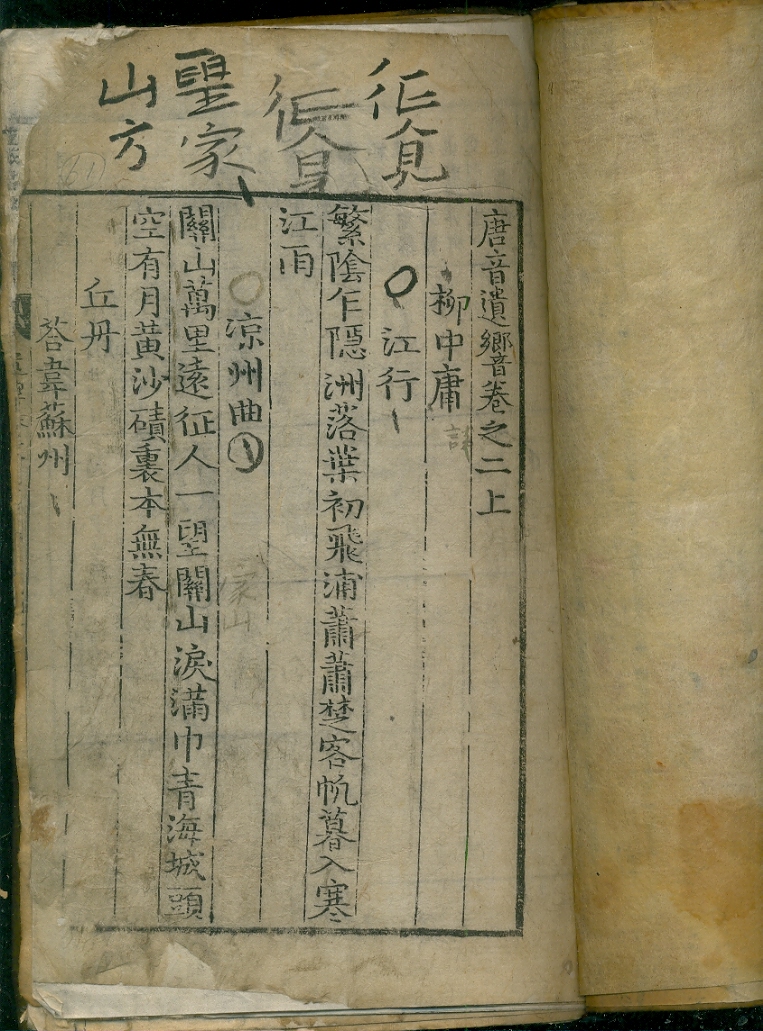 望家
山方
唐音遺響卷之二上
柳中庸
江行
繁陰乍隱洲落葉初飛浦蕭蕭楚客帆暮入寒
江雨
凉州曲
關山萬里遠征人一望關山淚滿巾青海城頭
空有月黃沙磧裏本無春
丘丹
荅韋蘇州
家山